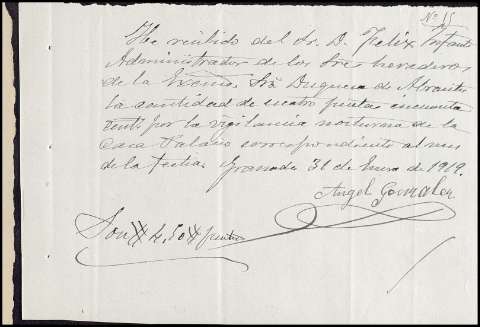 Nº 15
He recibido del Sr. D. Felix Infante
Administrador de los Sres herederos
de la Excma. Sra Duquesa de Abrantes
la cantidad de cuatro pesetas cincuenta
cents por la vigilancia nocturna de la
Casa Palacio correspondiente al mes
de la fecha. Granada 31 de Enero de 1919.
Angel Gonzalez
Son # 4,50 # pesetas